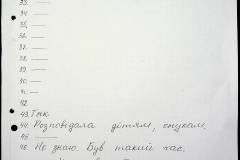 35. —
36. —
37. —
38. —
39. —
40. —
41. —
42.
43. Так
44. Розповідала дітям, онукам.
45. —
46. Не знаю. Був такий час.